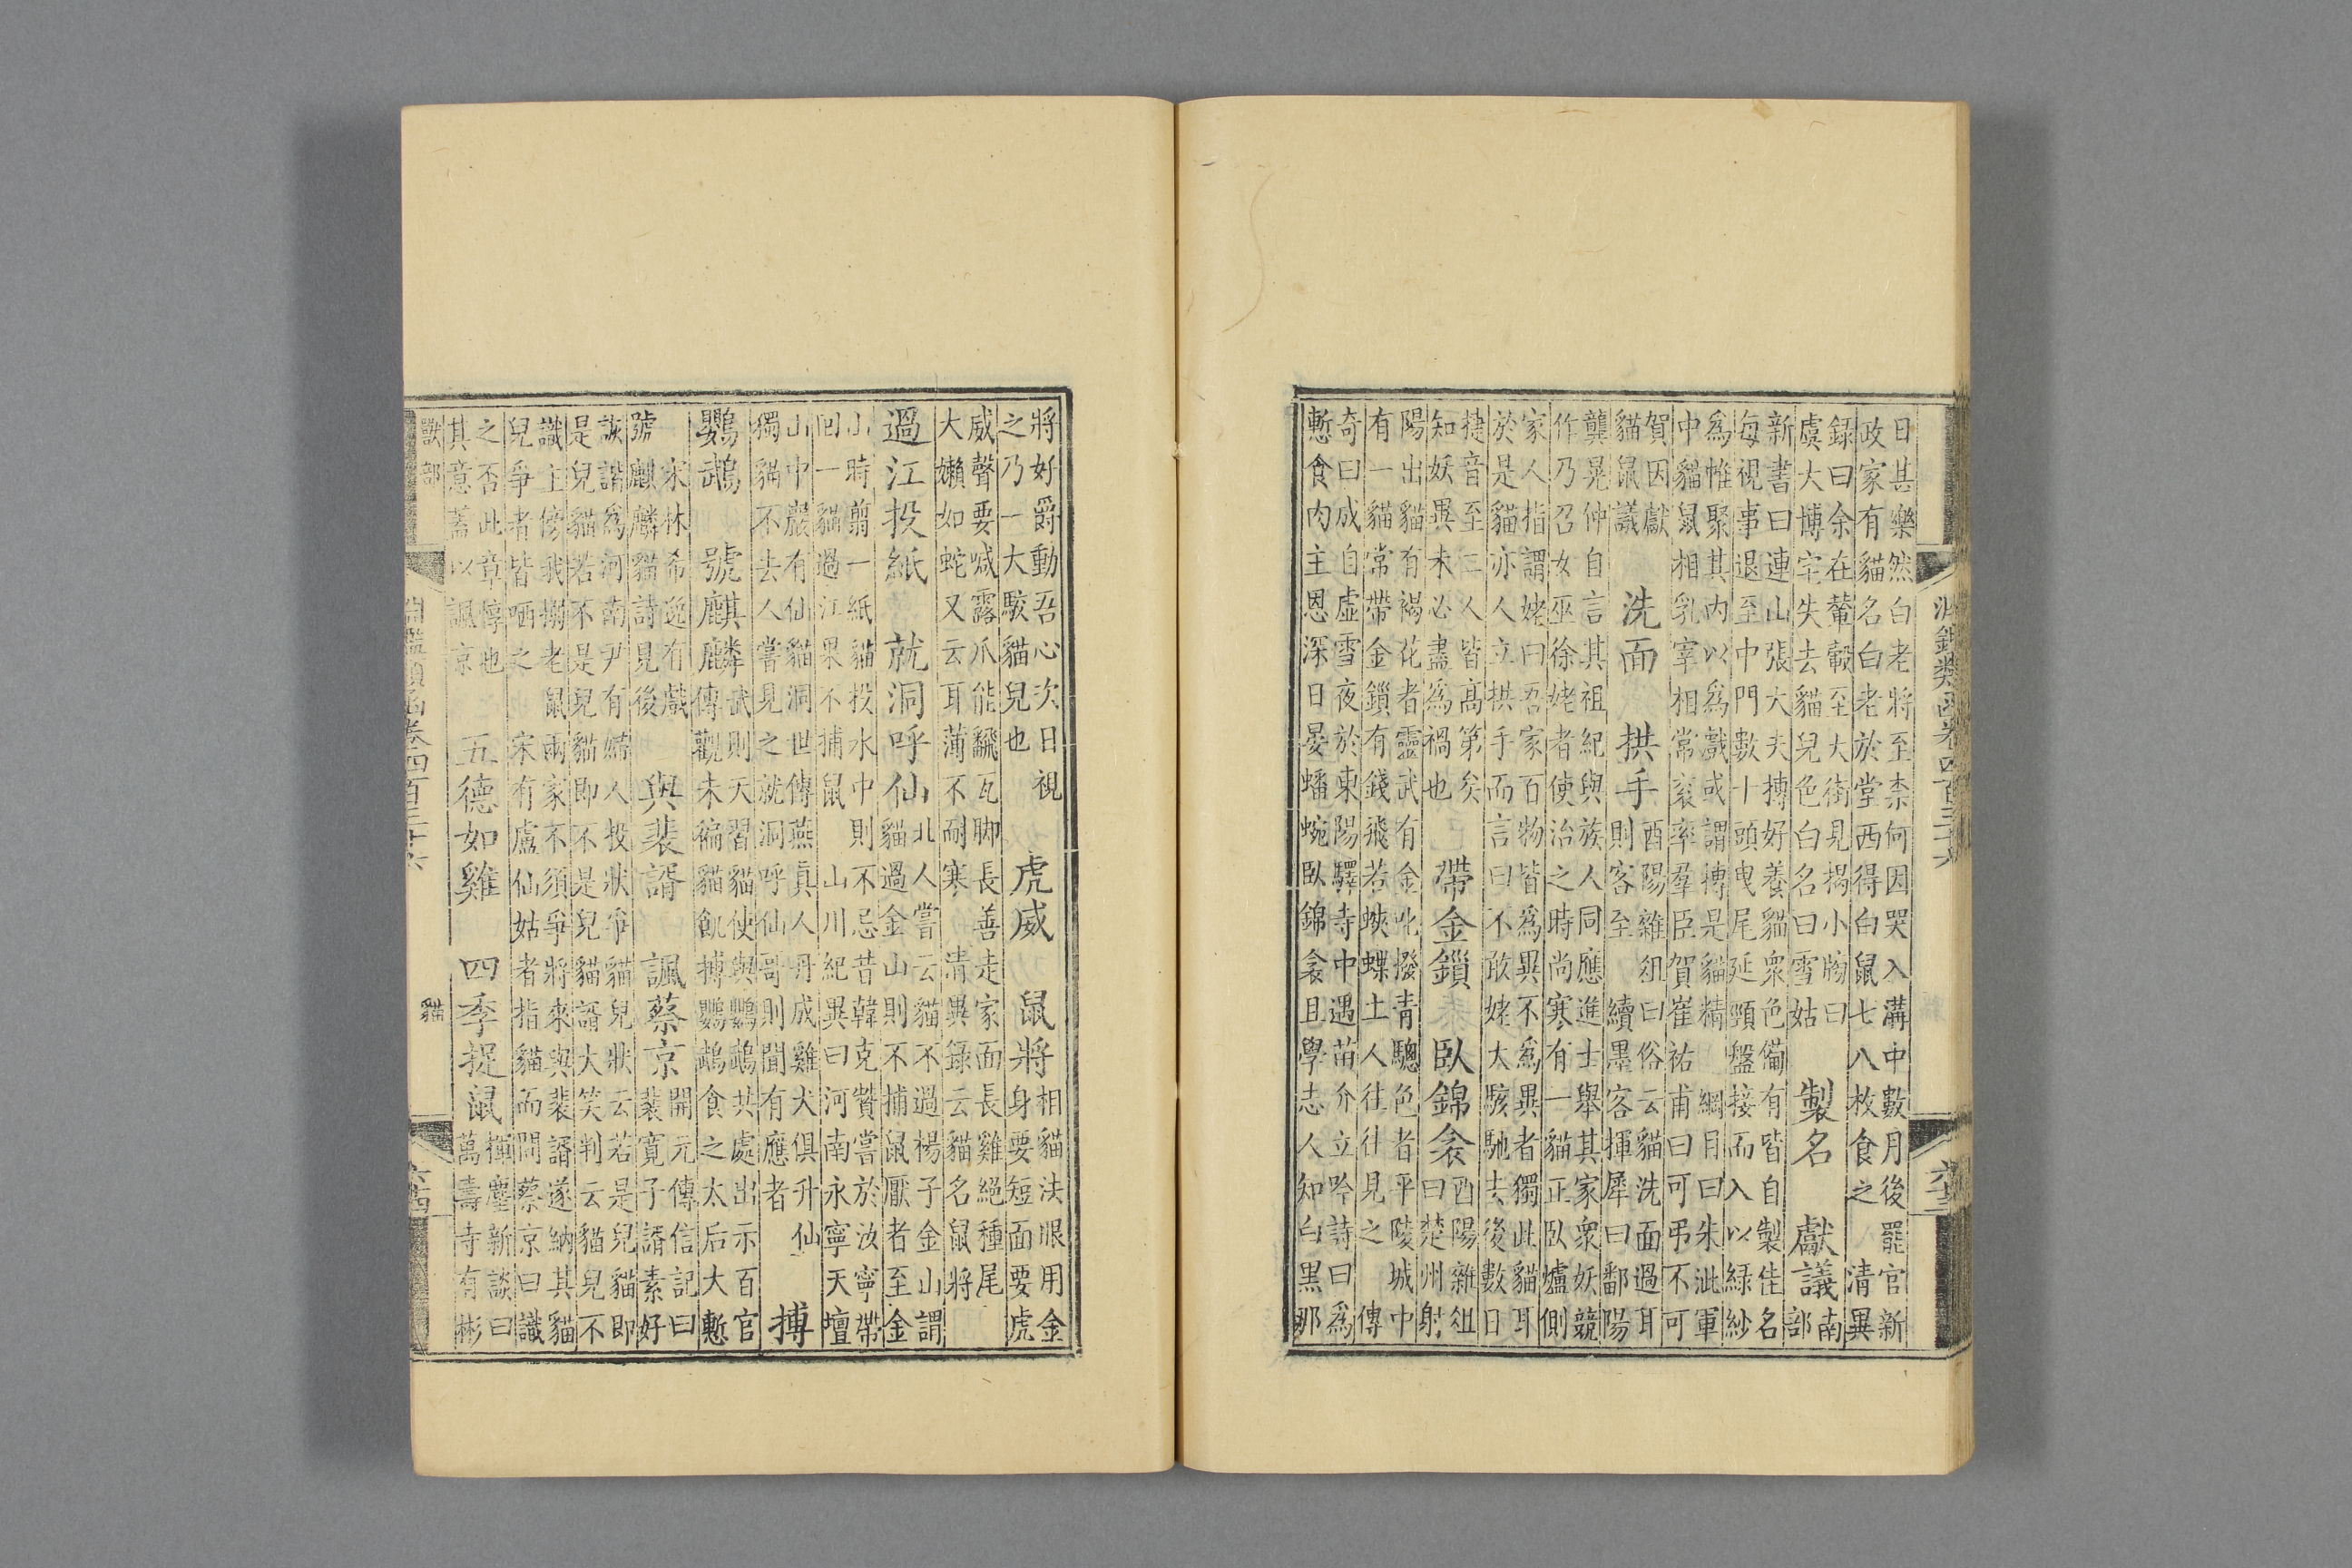 淵鑑類函卷四百三十六 六三
日甚樂然白老將至柰何因哭入溝中數月後罷官新
政家有貓名白老於堂西得白鼠七八枚食之 清異
録曰余在輦轂至大街見揭小牓曰
虞大博宅失去貓兒色白名曰雪姑
製名 獻議
南
部
新書曰連山張大夫摶好養貓衆色備有皆自製佳名
每視事退至中門數十頭曳尾延頸盤接而入以緑紗
爲帷聚其内以爲戲或謂摶是貓精 綱目曰朱泚軍
中貓鼠相乳宰相常衮率羣臣賀崔祐甫曰可弔不可
賀因獻
貓鼠議
洗面 拱手
酉陽雜俎曰俗云貓洗面過耳
則客至 續墨客揮犀曰鄱陽
龔晃仲自言其祖紀與族人同應進士舉其家衆妖競
作乃召女巫徐姥者使治之時尚寒有一貓正臥爐側
家人指謂姥曰吾家百物皆爲異不爲異者獨此貓耳
於是貓亦人立拱手而言曰不敢姥大駭馳去後數日
捷音至二人皆高第矣
知妖異未必盡爲禍也
帶金鎖 臥錦衾
酉陽雜俎
曰楚州射
陽出貓有褐花者靈武有金叱撥青驄色者平陵城中
有一貓常帶金鎖有錢飛若蛺蝶土人往往見之 傳
奇曰成自虛雪夜於東陽驛寺中遇苗介立吟詩曰爲
慙食肉主恩深日晏蟠蜿臥錦衾且學志人知白黑那
將好爵動吾心次日視
之乃一大駮貓兒也
虎威 鼠將
相貓法眼用金
身要短面要虎
威聲要喊露爪能翻瓦脚長善走家面長雞絕種尾
大嬾如蛇又云耳薄不耐寒 清異錄云貓名鼠將
過江投紙 就洞呼仙
北人嘗云貓不過楊子金山謂
貓過金山則不捕鼠厭者至金
山時剪一紙貓投水中則不忌昔韓克贊嘗於汝寧帶
回一貓過江果不捕鼠 山川紀異曰河南永寧天壇
山中巖有仙貓洞世傳燕真人丹成雞犬俱升仙
獨貓不去人嘗見之就洞呼仙哥則聞有應者
搏
鸚鵡 號麒麟
武則天習貓使與鸚鵡共處出示百官
傳觀未徧貓飢搏鸚鵡食之太后大慙
宋林希逸有戲
號麒麟貓詩見後
與裴諝 諷蔡京
開元傳信記曰
裴寛子諝素好
詼諧爲河南尹有婦人投狀爭貓兒狀云若是兒貓即
是兒貓若不是兒貓即不是兒貓諝大笑判云貓兒不
識主傍我搦老鼠兩家不須爭將來與裴諝遂納其貓
兒爭者皆哂之 宋有盧仙姑者指貓而問蔡京曰識
之否此章惇也
其意蓋以諷京
五德如雞 四季捉鼠
揮麈新談曰
萬壽寺有彬
獸部 淵鑑類函卷四百三十六 貓 六四